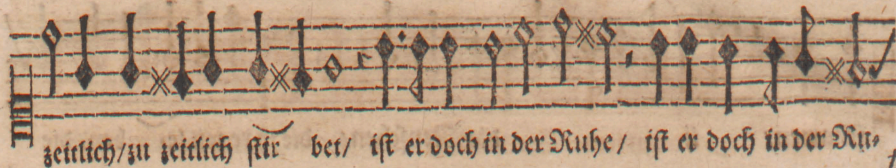 zeitlich/zu zeitlich ſtir bet/ iſt er doch in der Ruhe/ iſt er doch in der Ru⸗